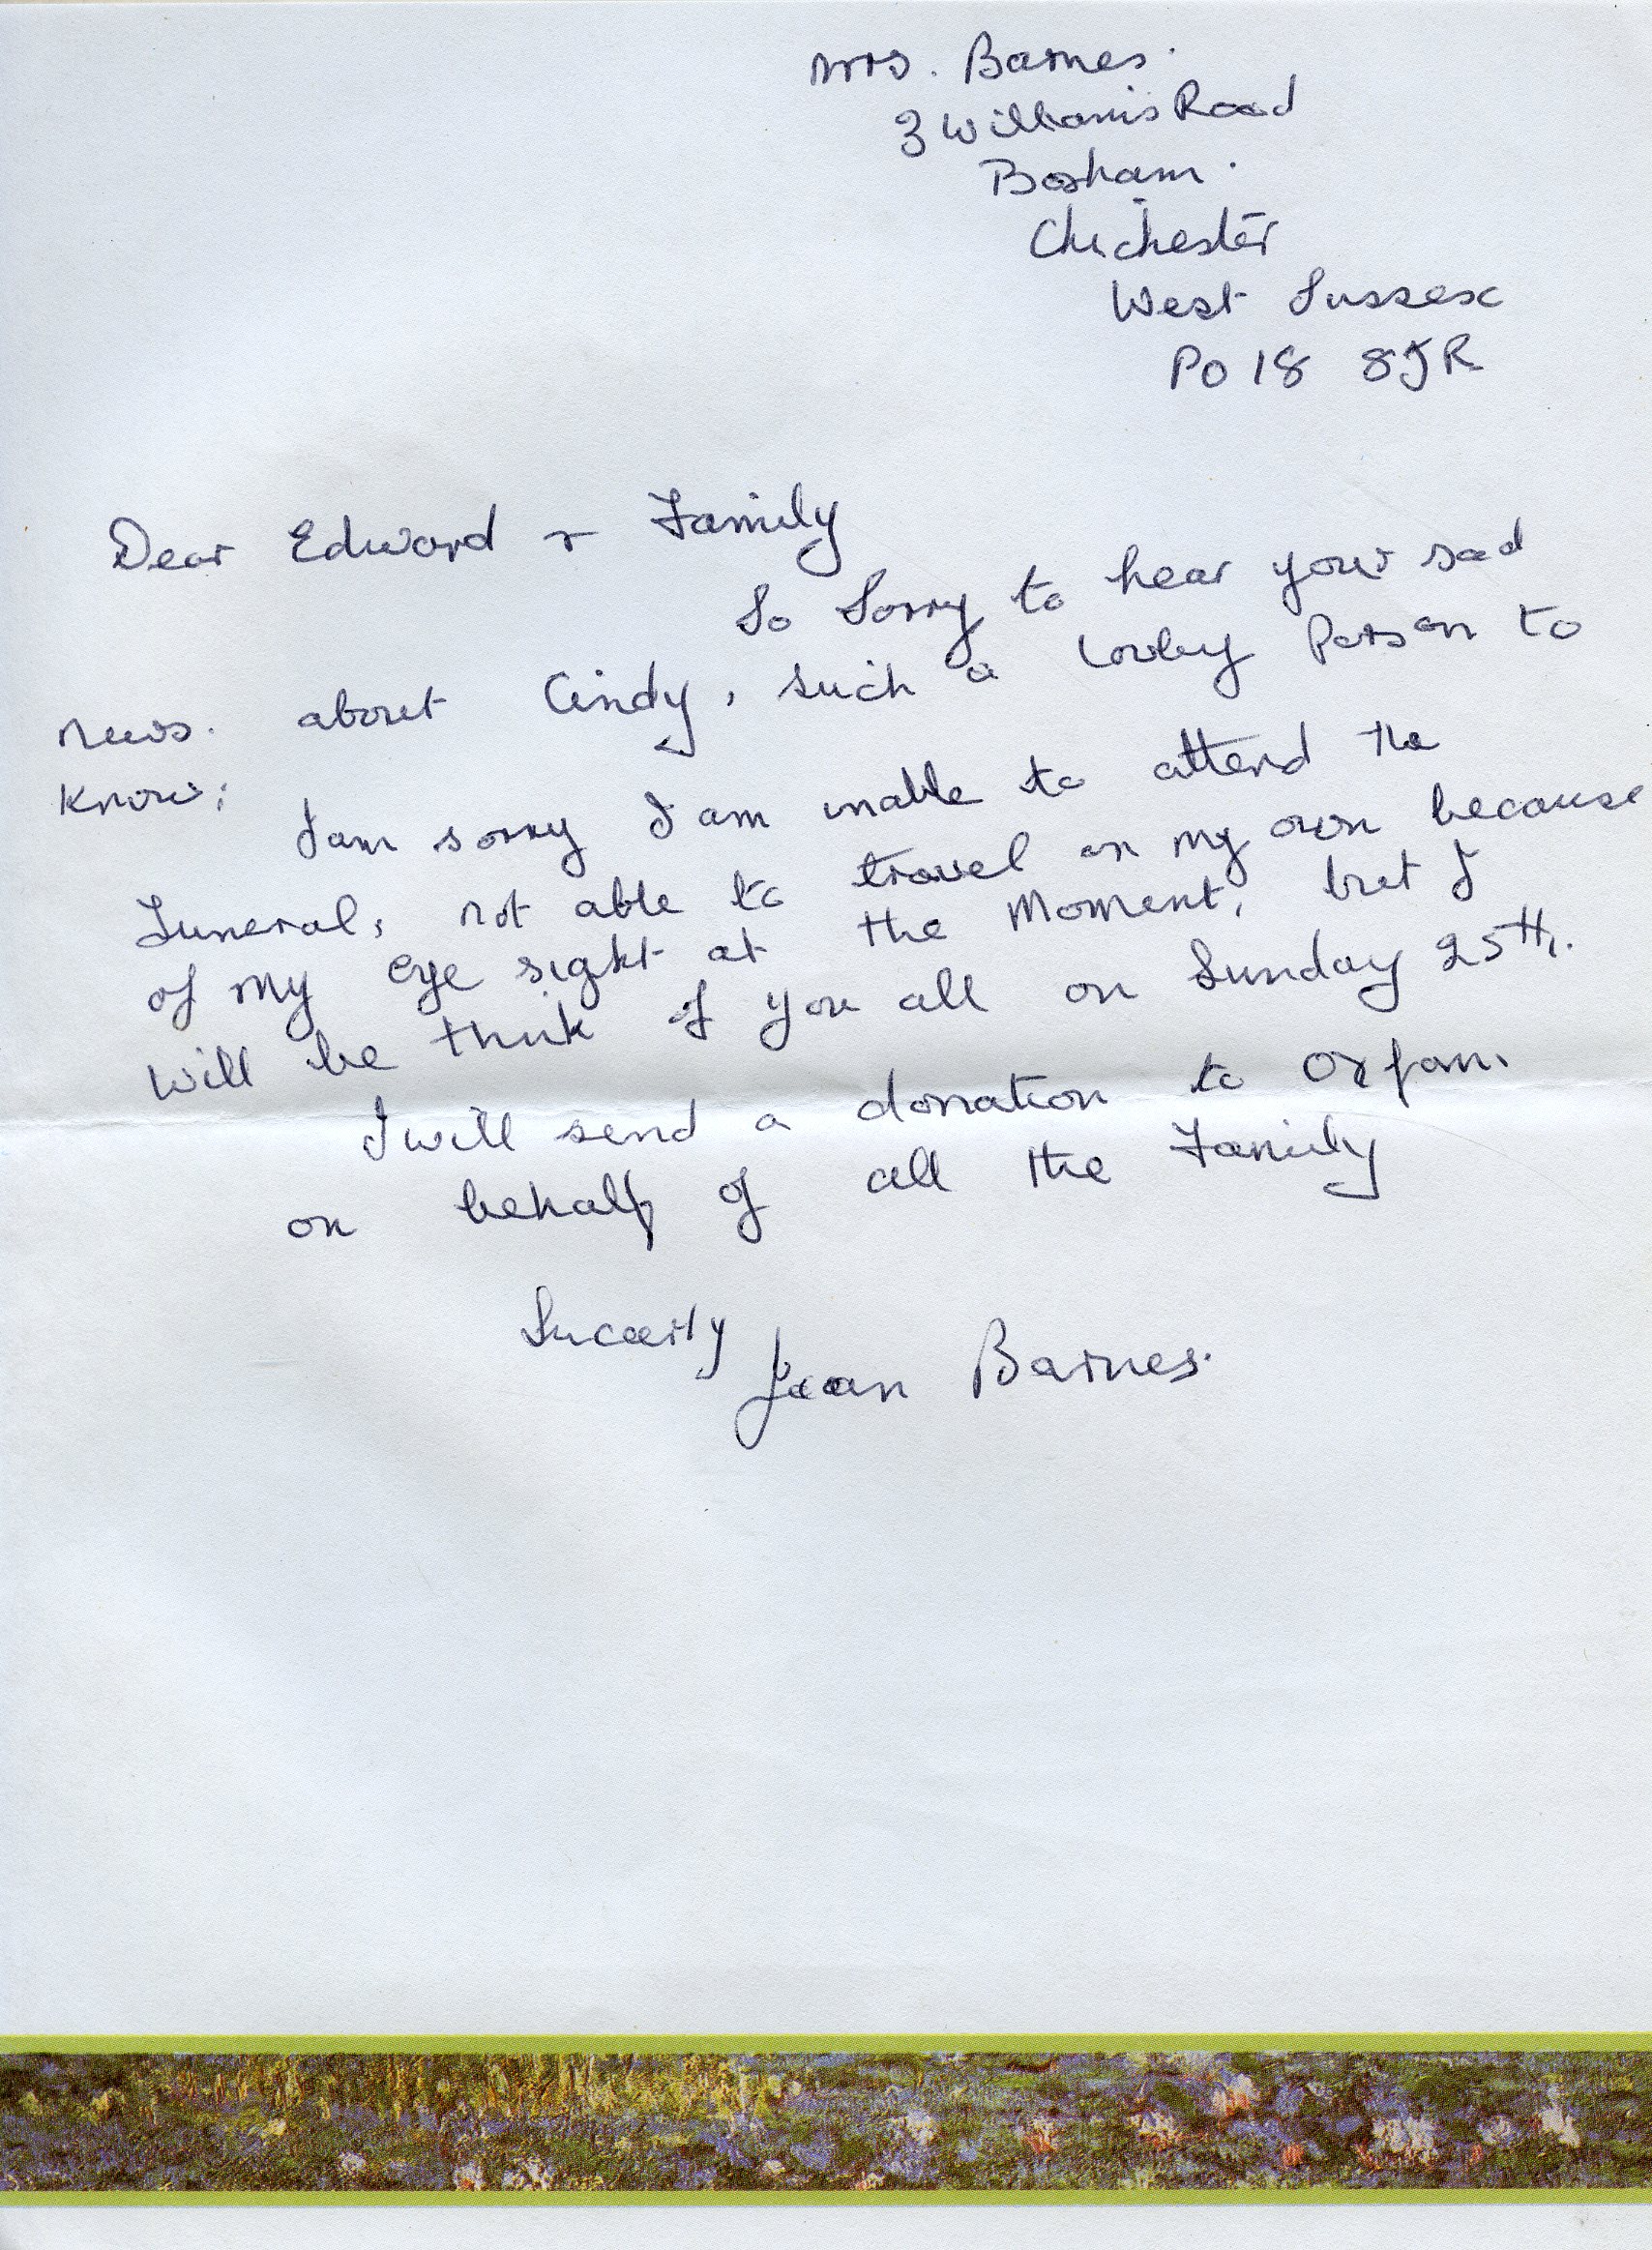 Mrs. Barnes.
3 Williams Road
Bosham.
Chichester
West Sussex
PO 18 8JR
Dear Edward + Family
So Sorry to hear your sad
news. about Cindy, such a lovley Person to
know;
I am sorry I am unable to attend the
Funeral, not able to travel on my own because
of my eye sight at the Moment, but I
will be think of you all on Sunday 25th.
I will send a donation to Oxfam.
on behalf of all the Family
Sincerly
Jean Barnes.